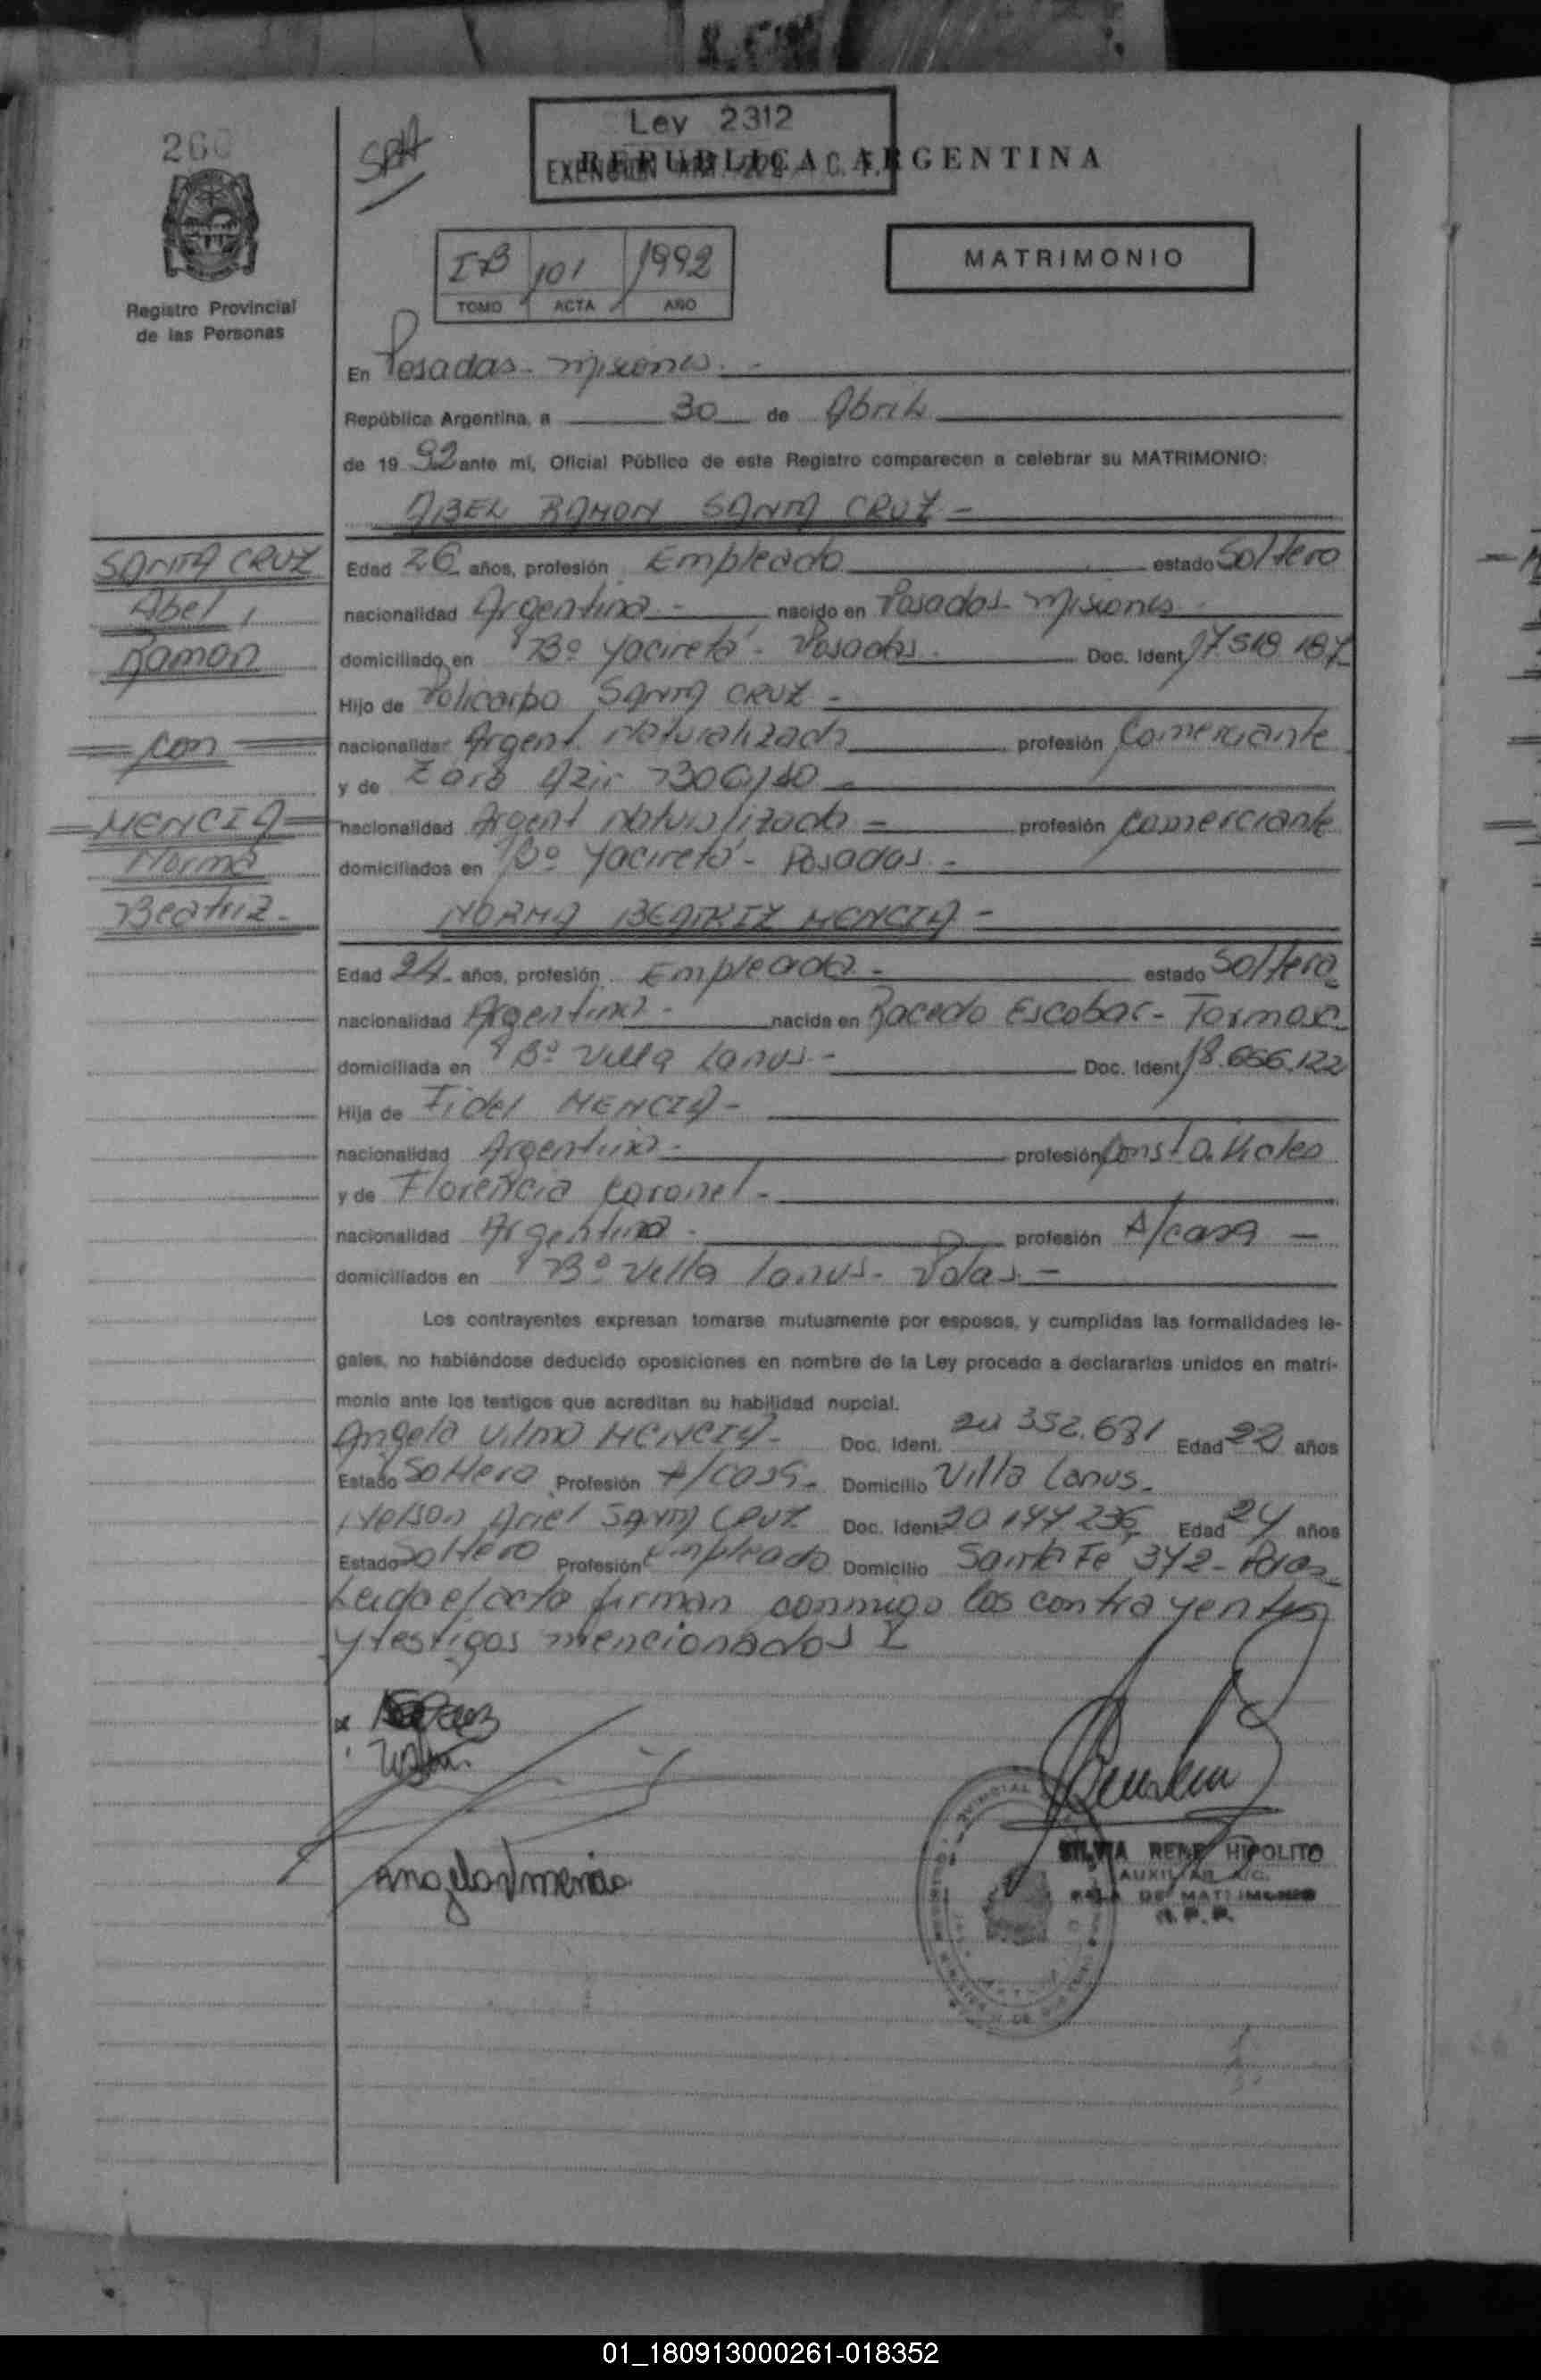 260
SPA
Ley 2312
EXENCION
REPUBLICA ARGENTINA
I-B 101 1992
TOMO ACTA AÑO
MATRIMONIO
Registro Provincial
de las Personas
En Posadas - Misiones. -
República Argentina, a 30 de Abril
de 19 92 ante mí, Oficial Público de este Registro comparecen a celebrar su MATRIMONIO:
ABEL RAMON SANTA CRUZ -
SANTA CRUZ
Abel,
Ramon
con
MENCIA
Norma
Beatriz -
Edad 26 años, profesión Empleado estado Soltero
nacionalidad Argentina - nacido en Posadas - Misiones -
domiciliado en Bº Yacireta - Posadas - Doc. Ident. 17.518.187
Hijo de Policarpo SANTA CRUZ -
nacionalidad Argent. Naturalizado profesión Comerciante
y de Zara
nacionalidad Argent Naturalizada - profesión Comerciante
domiciliados en Bº Yacireta - Posadas -
NORMA BEATRIZ MENCIA -
Edad 24 - años, profesión Empleada - estado Soltera
nacionalidad Argentina - nacida en Racedo Escobar - Formosa
domiciliada en Bº Villa Lanus - Doc. Ident. 18.656.122
Hija de Fidel MENCIA -
nacionalidad Argentina - profesión
y de Florencia Coronel -
nacionalidad Argentina - profesión A/casa -
domiciliados en Bº Villa Lanus - Pdas -
Los contrayentes expresan tomarse mutuamente por esposos, y cumplidas las formalidades le-
gales, no habiéndose deducido oposiciones en nombre de la Ley procedo a declararlos unidos en matri-
monio ante los testigos que acreditan su habilidad nupcial.
Angela Vilma MENCIA - Doc. Ident. 20 352.681 Edad 22 años
Estado Soltera Profesión A/casa - Domicilio Villa Lanus -
Nelson Ariel SANTA CRUZ Doc. Ident. 20.144.236 Edad 24 años
Estado Soltero Profesión Empleado Domicilio Santa Fe 342 - Pdas
Leida el acta firman conmigo los contrayentes
y testigos mencionados
Angela V mencia
SILVIA RENE HIPOLITO
AUXILIAR A/C.
SALA DE MATRIMONIO
R.P.P.
01_180913000261-018352